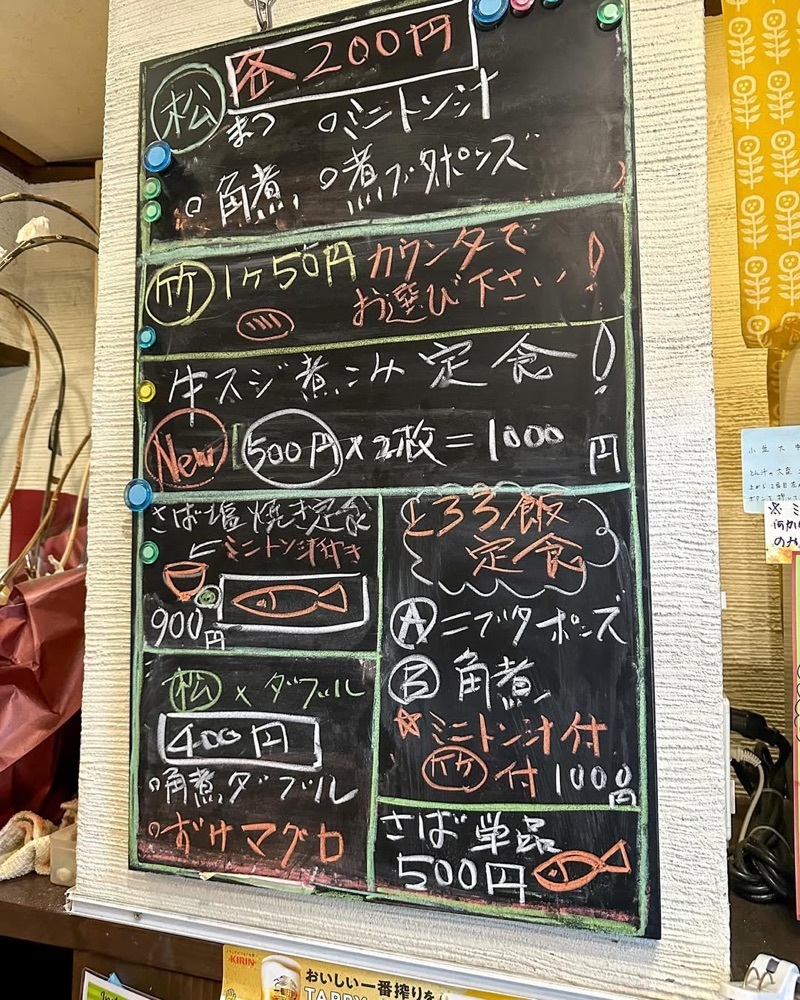 松 各200円
まつ ○ミニトン汁
○角煮 ○煮ブタポンズ
竹 1ヶ50円 カウンタで
お選び下さい!
牛スジ煮こみ定食!
New 500円×2枚=1000円
さば塩焼き定食
←ミニトン汁付き
900円
松×ダブル
400円
○角煮ダブル
○ずけマグロ
とろろ飯
定食
Ⓐニブタポンズ
Ⓑ角煮
☆ミニトン汁付
竹付1000円
さば単品
500円
KIRIN
おいしい一番搾りを